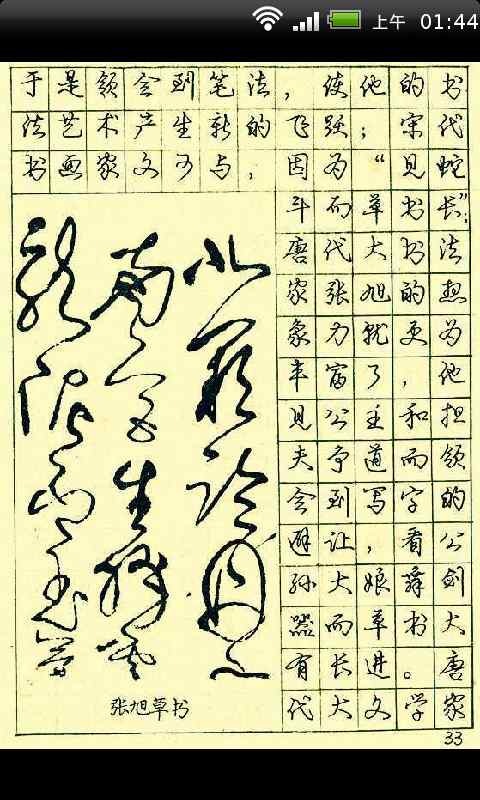 上午 01:44
于是领会到笔法，使他的书
法艺术产生新的飞跃；宋代
书画家文可与，因为“见蛇
斗而草书长”；
唐代大书法
家张旭的想
象力就更为
丰富了，他
见公主和担
夫争道而领
会到写字的
避让，看公
孙大娘舞剑
器而草书大
有长进。唐
代大文学家
北阙临丹水
南宫生绛云
龙泥印玉简
张旭草书
33